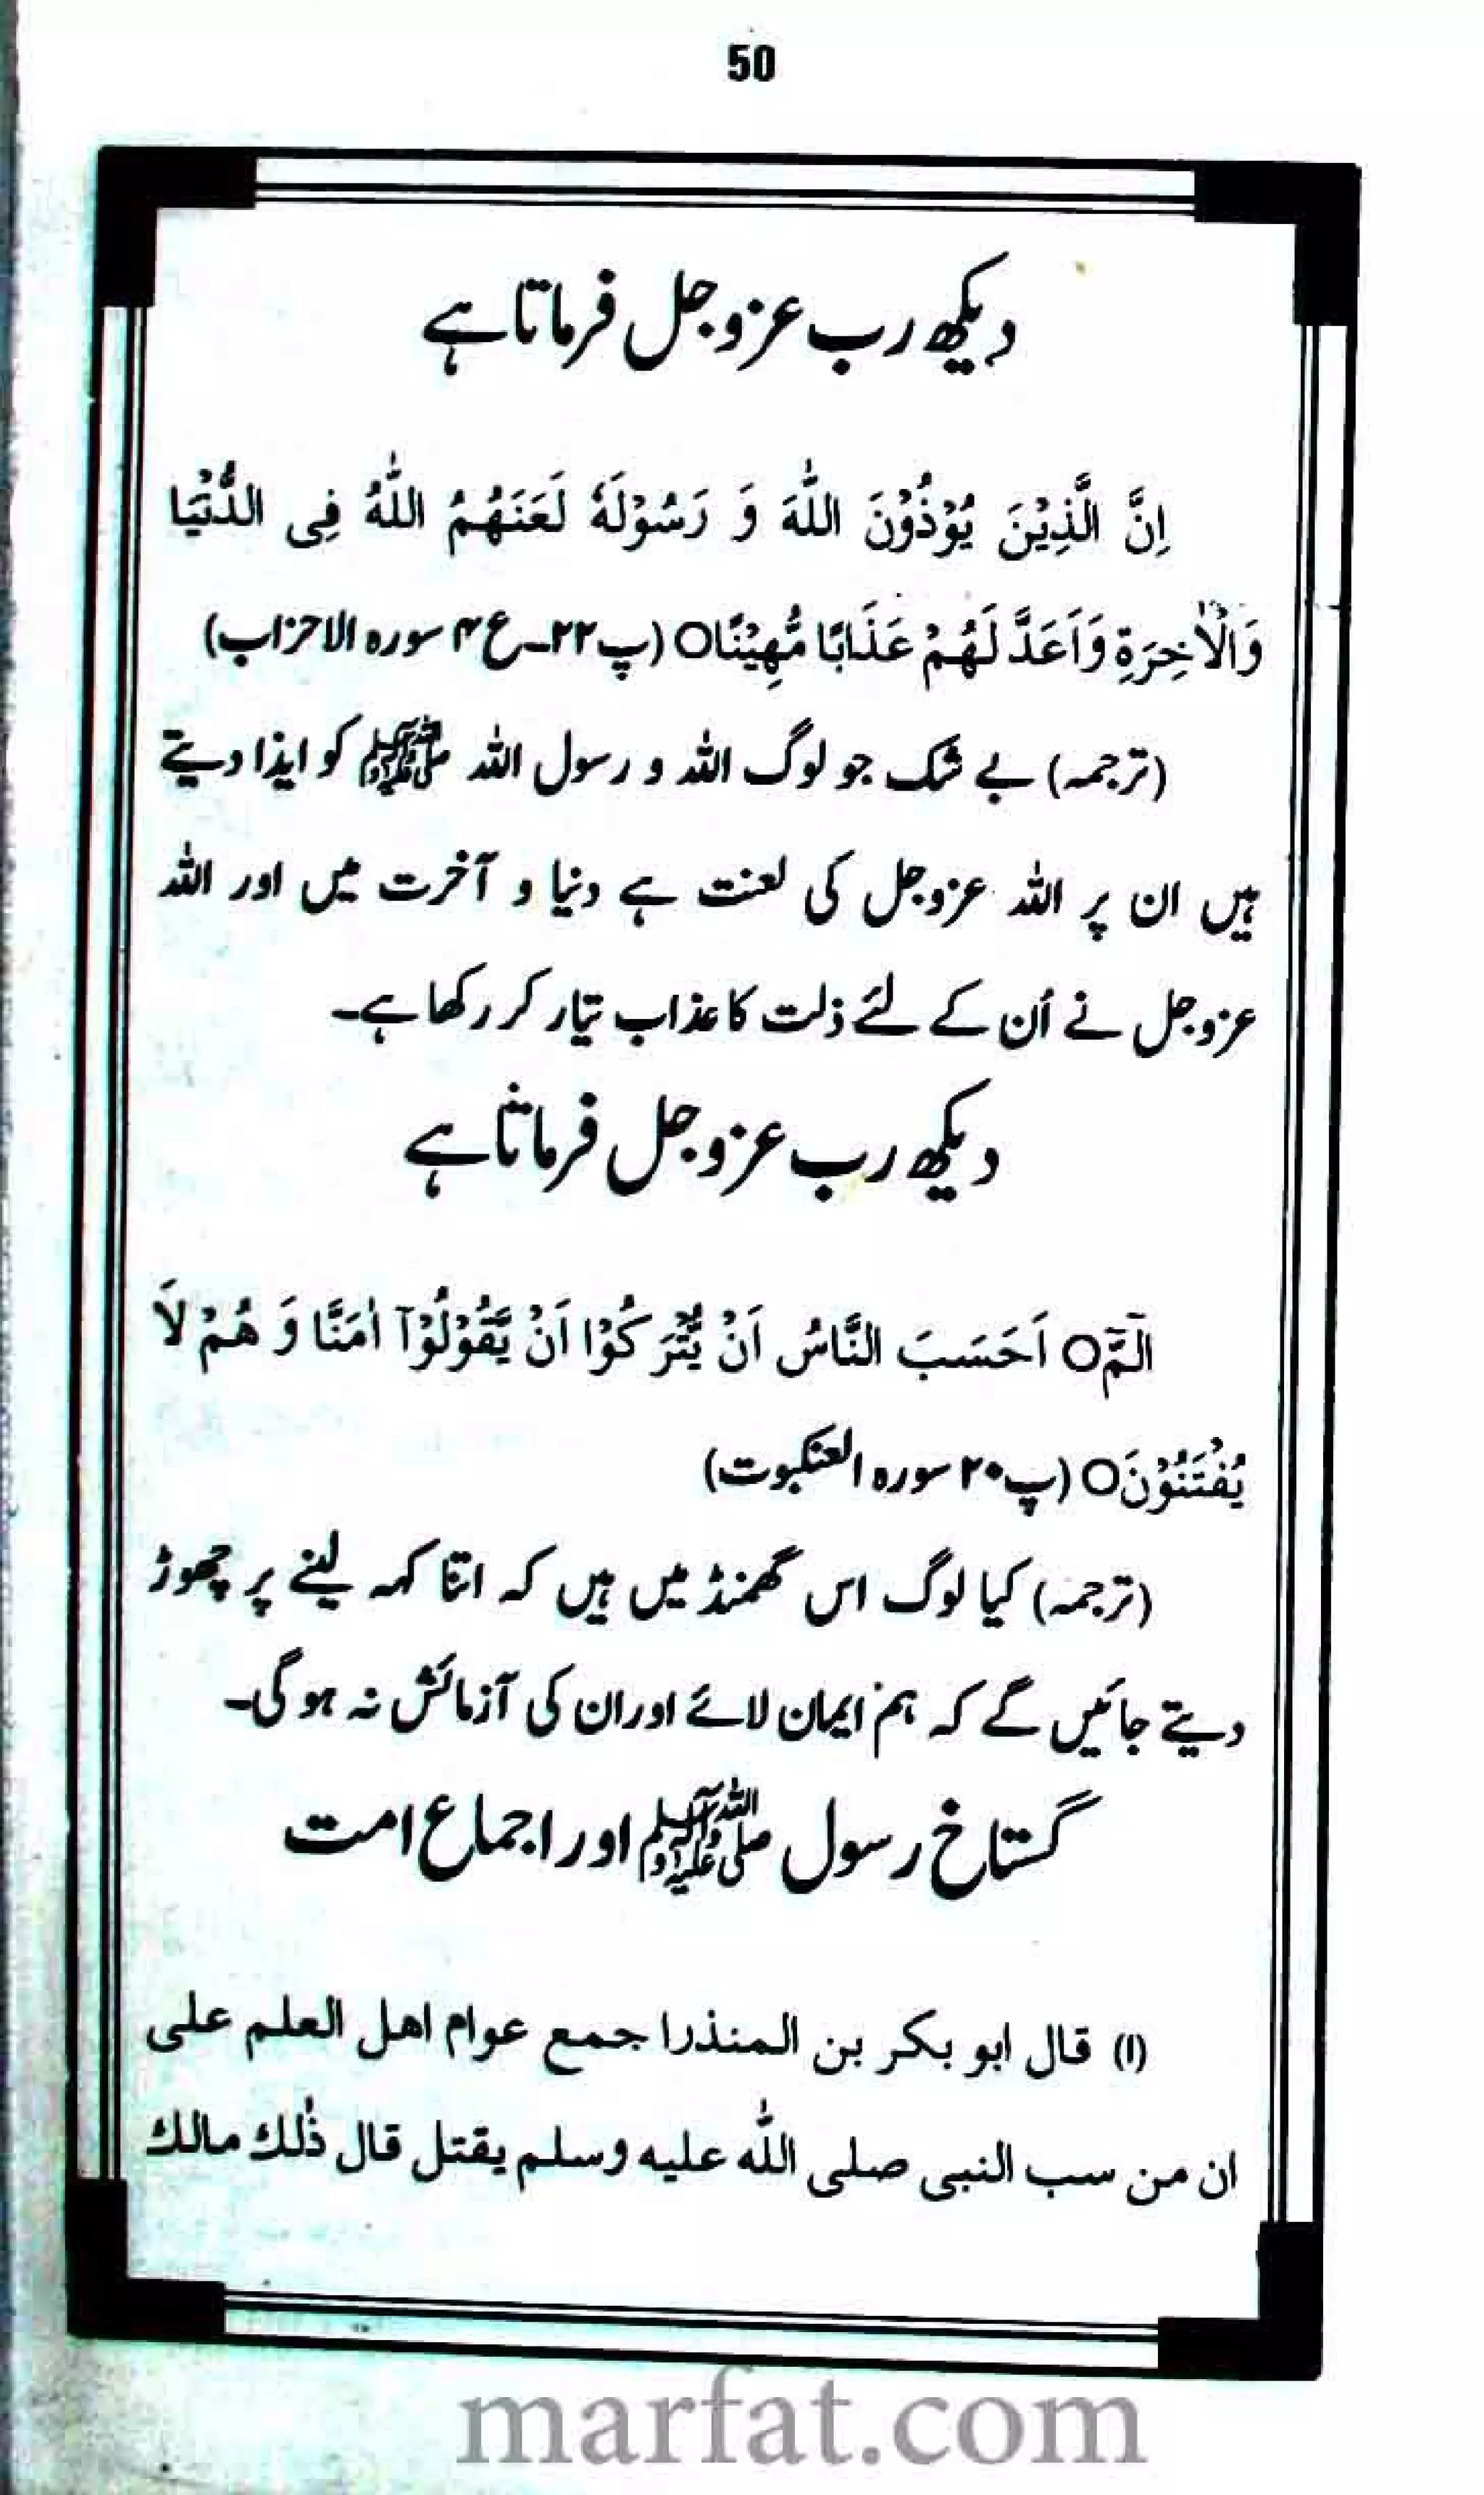 50
دیکھ رب عزوجل فرماتا ہے
اِنَّ الَّذِیْنَ یُوْذُوْنَ اللّٰهَ وَ رَسُوْلَهٗ لَعَنَهُمُ اللّٰهُ فِی الدُّنْیَا
وَالْاٰخِرَةِ وَاَعَدَّ لَهُمْ عَذَابًا مُّهِیْنًا○ (پ۲۲۔ع ۴ سورہ الاحزاب)
(ترجمہ) بے شک جو لوگ اللہ و رسول اللہ ﷺ کو ایذا دیتے
ہیں ان پر اللہ عزوجل کی لعنت ہے دنیا و آخرت میں اور اللہ
عزوجل نے اُن کے لئے ذلت کا عذاب تیار کر رکھا ہے۔
دیکھ رب عزوجل فرماتا ہے
الٓمّٓ○ اَحَسَبَ النَّاسُ اَنْ یُّتْرَکُوْا اَنْ یَّقُوْلُوْٓا اٰمَنَّا وَ هُمْ لَا
یُفْتَنُوْنَ○ (پ۲۰ سورہ العنکبوت)
(ترجمہ) کیا لوگ اس گھمنڈ میں ہیں کہ اتنا کہہ لینے پر چھوڑ
دیتے جائیں گے کہ ہم ایمان لائے اور ان کی آزمائش نہ ہوگی۔
گستاخ رسول ﷺ اور اجماع امت
(۱) قال ابو بکر بن المنذرا جمع عوام اهل العلم علی
ان من سب النبی صلی اللّٰه علیه وسلم یقتل قال ذٰلك مالك
marfat.com